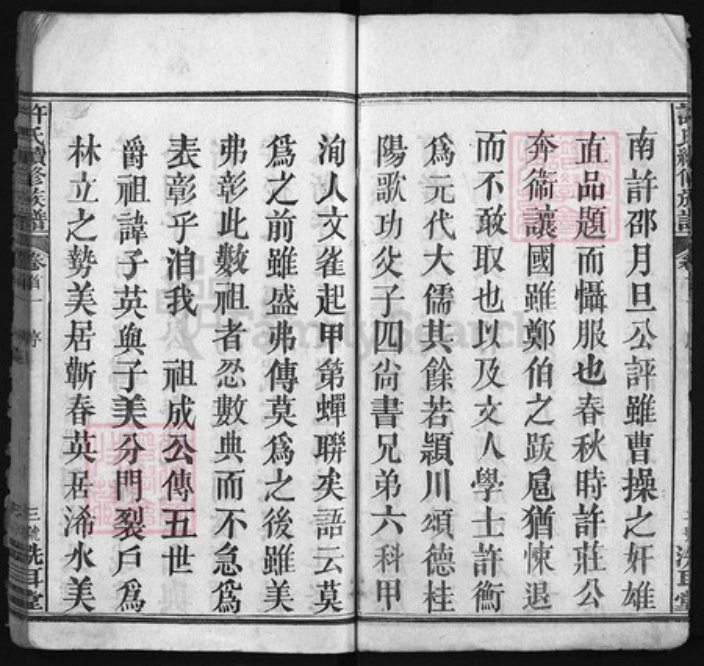 南許邵月旦公評雖曹操之奸雄
直品題而懾服也春秋時許莊公
奔衞讓國雖鄭伯之跋扈猶悚退
而不敢取也以及文人學士許衡
爲元代大儒其餘若頴川頌德桂
陽歌功父子四尙書兄弟六科甲
洵人文雀起甲第蟬聯矣語云莫
爲之前雖盛弗傳莫爲之後雖美
弗彰此數祖者忍數典而不急爲
表彰乎洎我　祖成公傳五世
爵祖諱子英與子美分門裂戶爲
林立之勢美居蘄春英居浠水美
許氏續修族譜
卷首一
序
三號
洗耳堂
FamilySearch